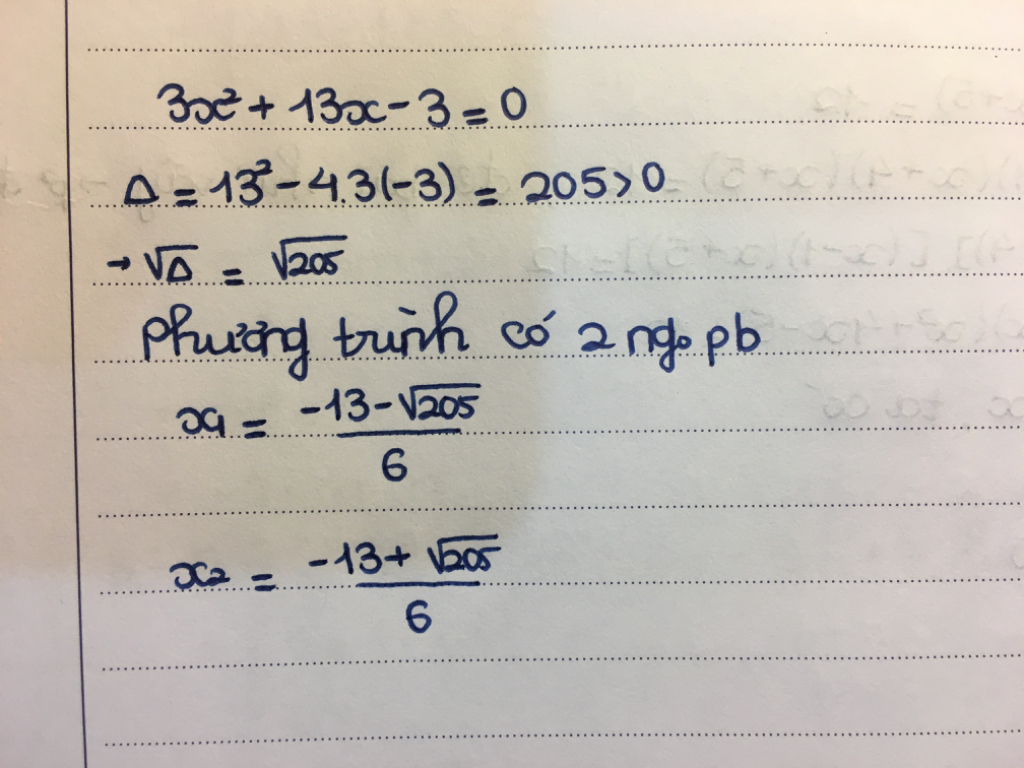 3x² + 13x - 3 = 0
Δ = 13² - 4.3(-3) = 205 > 0
→ √Δ = √205
Phương trình có 2 ngo pb
x1 = (-13-√205)/6
x2 = (-13+√205)/6